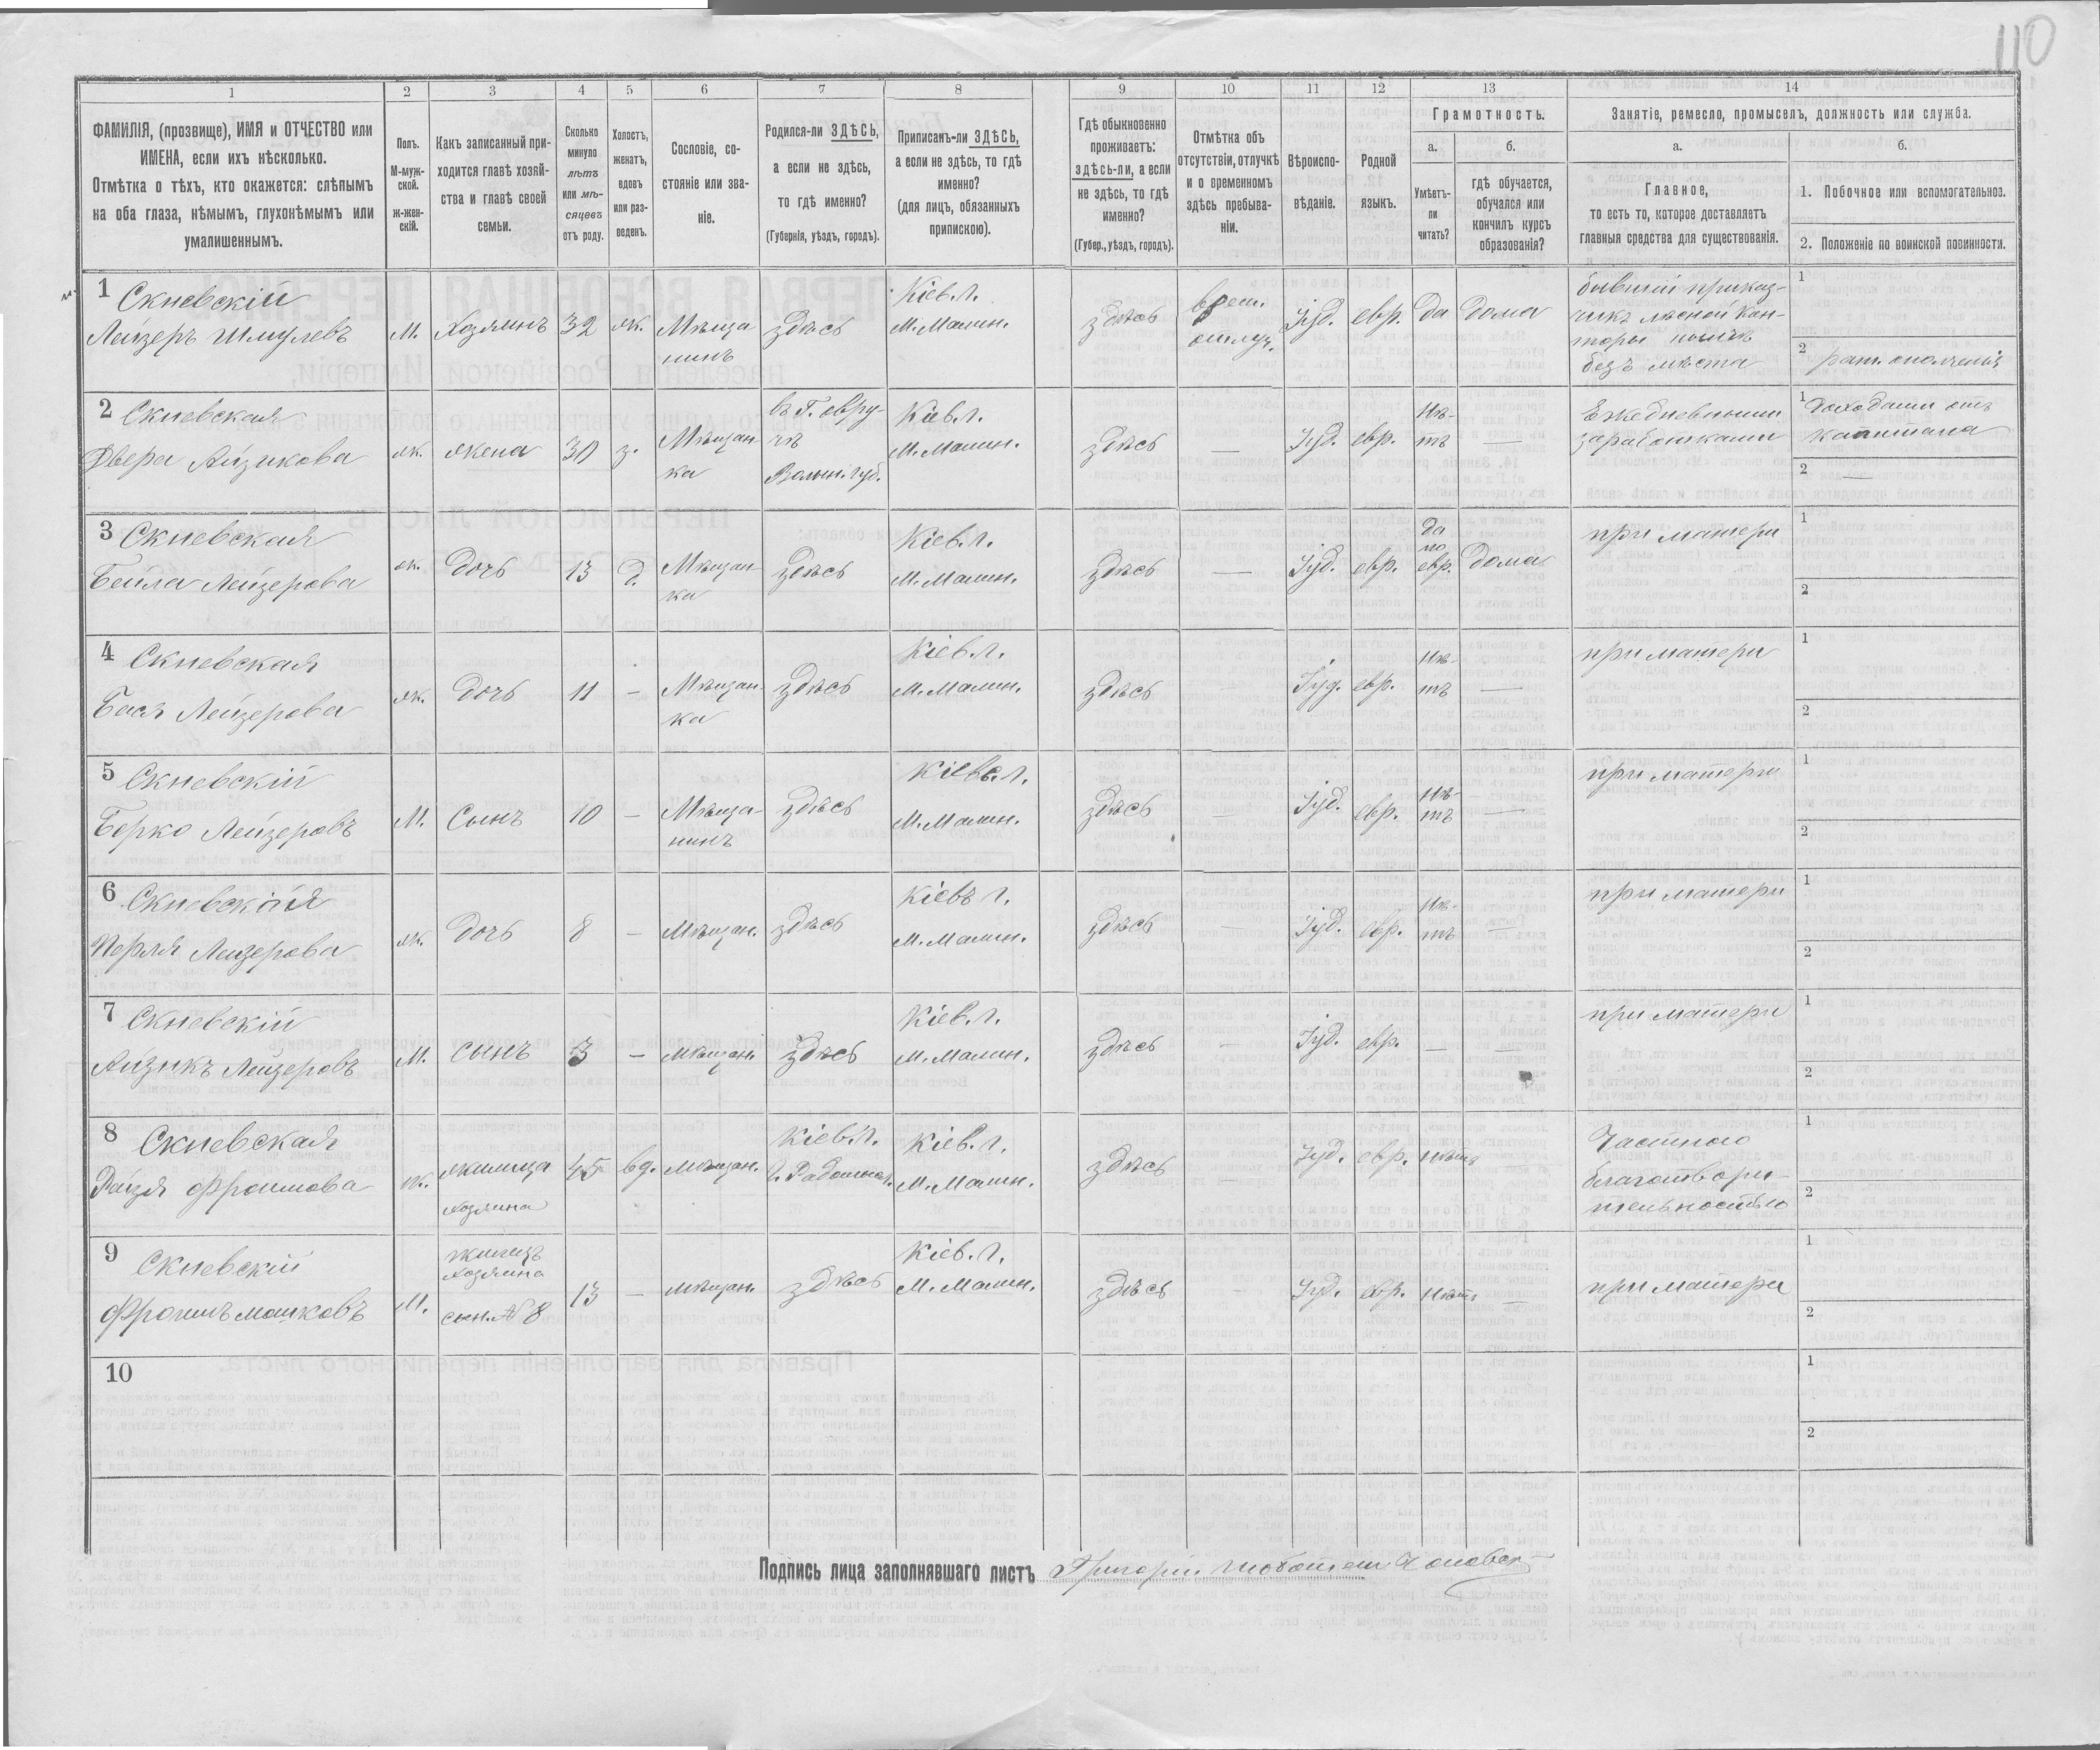 110
1 2 3 4 5 6 7 8 9 10 11 12 13 14
ФАМИЛІЯ, (прозвище), ИМЯ и ОТЧЕСТВО или
ИМЕНА, если ихъ нѣсколько.
Отмѣтка о тѣхъ, кто окажется: слѣпымъ
на оба глаза, нѣмымъ, глухонѣмымъ или
умалишеннымъ.
Полъ.
М-муж-
ской.
ж-жен-
скій.
Какъ записанный при-
ходится главѣ хозяй-
ства и главѣ своей
семьи.
Сколько
минуло
лѣтъ
или мѣ-
сяцевъ
отъ роду.
Холостъ,
женатъ,
вдовъ
или раз-
веденъ.
Сословіе, со-
стояніе или зва-
ніе.
Родился-ли ЗДѢСЬ,
а если не здѣсь,
то гдѣ именно?
(Губернія, уѣздъ, городъ).
Приписанъ-ли ЗДѢСЬ,
а если не здѣсь, то гдѣ
именно?
(для лицъ, обязанныхъ
припискою).
Гдѣ обыкновенно
проживаетъ:
здѣсь-ли, а если
не здѣсь, то гдѣ
именно?
(Губер., уѣздъ, городъ).
Отмѣтка объ
отсутствіи, отлучкѣ
и о временномъ
здѣсь пребыва-
ніи.
Вѣроиспо-
вѣданіе.
Родной
языкъ.
Грамотность.
а.
Умѣетъ-
ли
читать?
б.
гдѣ обучается,
обучался или
кончилъ курсъ
образованія?
Занятіе, ремесло, промыселъ, должность или служба.
а.
Главное,
то есть то, которое доставляетъ
главныя средства для существованія.
б.
1. Побочное или вспомогательное.
2. Положеніе по воинской повинности.
1 Скневскій
Лейзеръ Шмулевъ
М.
Хозяинъ
32
ж.
Мѣща-
нинъ
здѣсь
Кіев. г.
М. Малин.
здѣсь
врем.
отлуч.
Іуд.
евр.
да
дома
бывшій приказ-
чикъ лѣсной кон-
торы
безъ мѣста
1
2 рат. ополченія
2 Скневская
Двера Айзикова
ж.
жена
30
з.
Мѣщан-
ка
въ г. Овру-
чѣ
Волын. губ.
Кіев. г.
М. Малин.
здѣсь
—
Іуд.
евр.
нѣ-
тъ
—
Ежедневными
заработками
1 Доходами отъ
капитала
2 —
3 Скневская
Бейла Лейзерова
ж.
Дочь
13
д.
Мѣщан-
ка
здѣсь
Кіев. г.
М. Малин.
здѣсь
—
Іуд.
евр.
да
по
евр.
дома
при матери
1
2
4 Скневская
Бася Лейзерова
ж.
Дочь
11
—
Мѣщан-
ка
здѣсь
Кіев. г.
М. Малин.
здѣсь
Іуд.
евр.
нѣ-
тъ
—
при матери
1
2
5 Скневскій
Борко Лейзеровъ
М.
Сынъ
10
—
Мѣща-
нинъ
здѣсь
Кіевс. г.
М. Малин.
здѣсь
—
Іуд.
евр.
нѣ-
тъ
—
при матери
1
2
6 Скневская
Перля Лейзерова
ж.
Дочь
8
—
Мѣщан.
здѣсь
Кіевъ г.
М. Малин.
здѣсь
—
Іуд.
евр.
нѣ-
тъ
—
при матери
1
2
7 Скневскій
Айзикъ Лейзеровъ
М.
сынъ
3
—
мѣщан.
здѣсь
Кіев. г.
М. Малин.
здѣсь
—
Іуд.
евр.
—
—
при матери
1
2
8 Скневская
Рейзя Фроимова
ж.
жилица
хозяина
45
вд.
мѣщан.
Кіев. г.
г. Радомысл.
Кіев. г.
М. Малин.
здѣсь
—
Іуд.
евр.
нѣтъ
Частною
благотвори-
тельностью
1
2
9 Скневскій
Фроимъ Мошковъ
М.
жилецъ
хозяина
сын. № 8
13
—
мѣщан.
здѣсь
Кіев. г.
М. Малин.
здѣсь
—
Іуд.
евр.
нѣтъ
—
при матери
1
2
10
1
2
Подпись лица заполнявшаго листъ Григорій